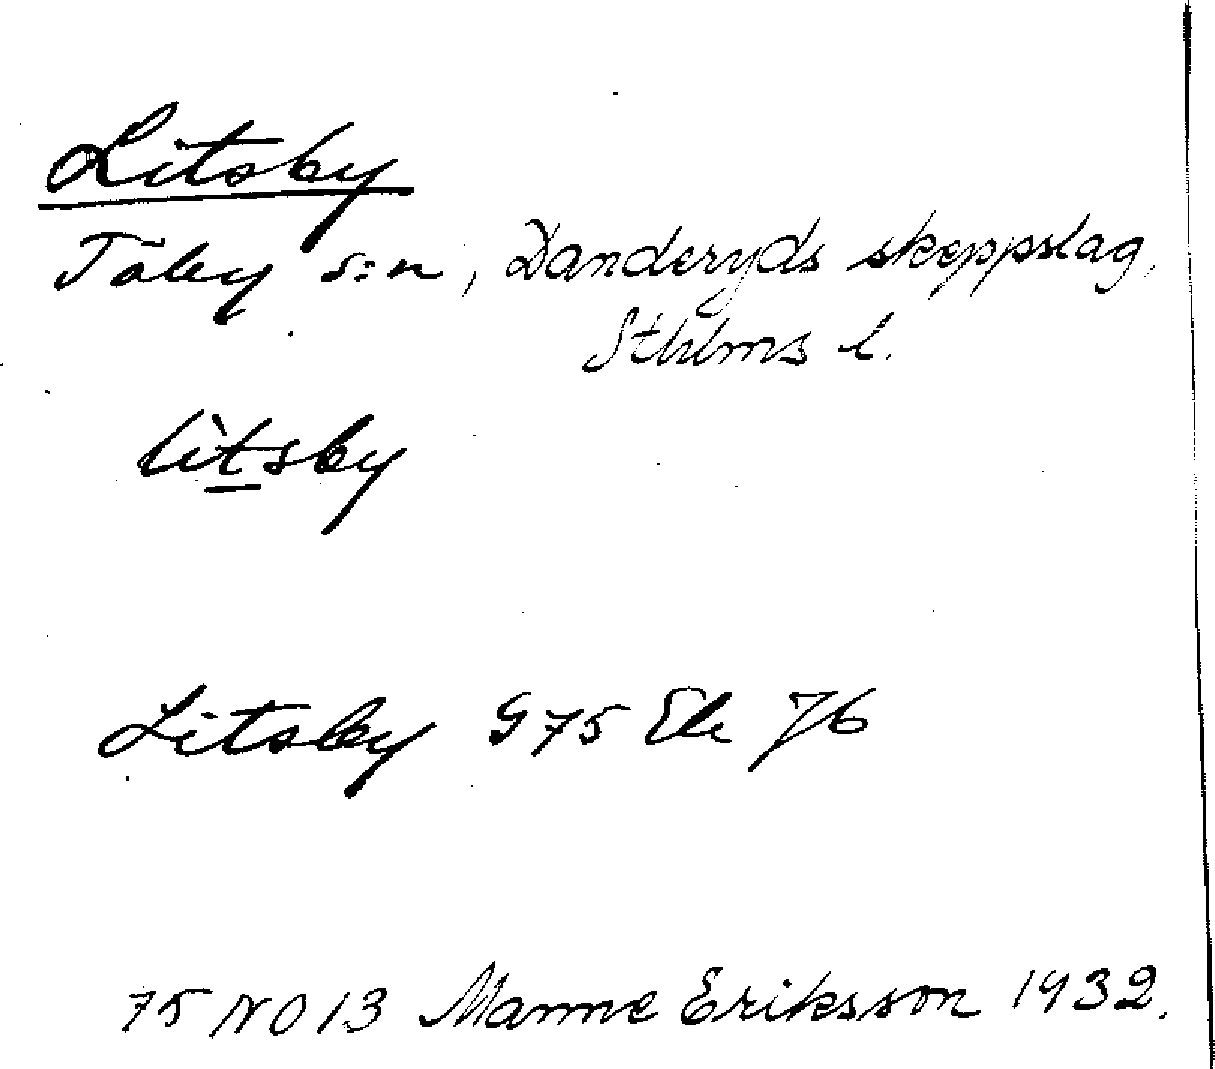 Litsby
Täby s:n, Danderyds skeppslag,
Sthlms l.
lìtsby
Litsby G75 Ek 76
75 NO 13 Manne Eriksson 1932.